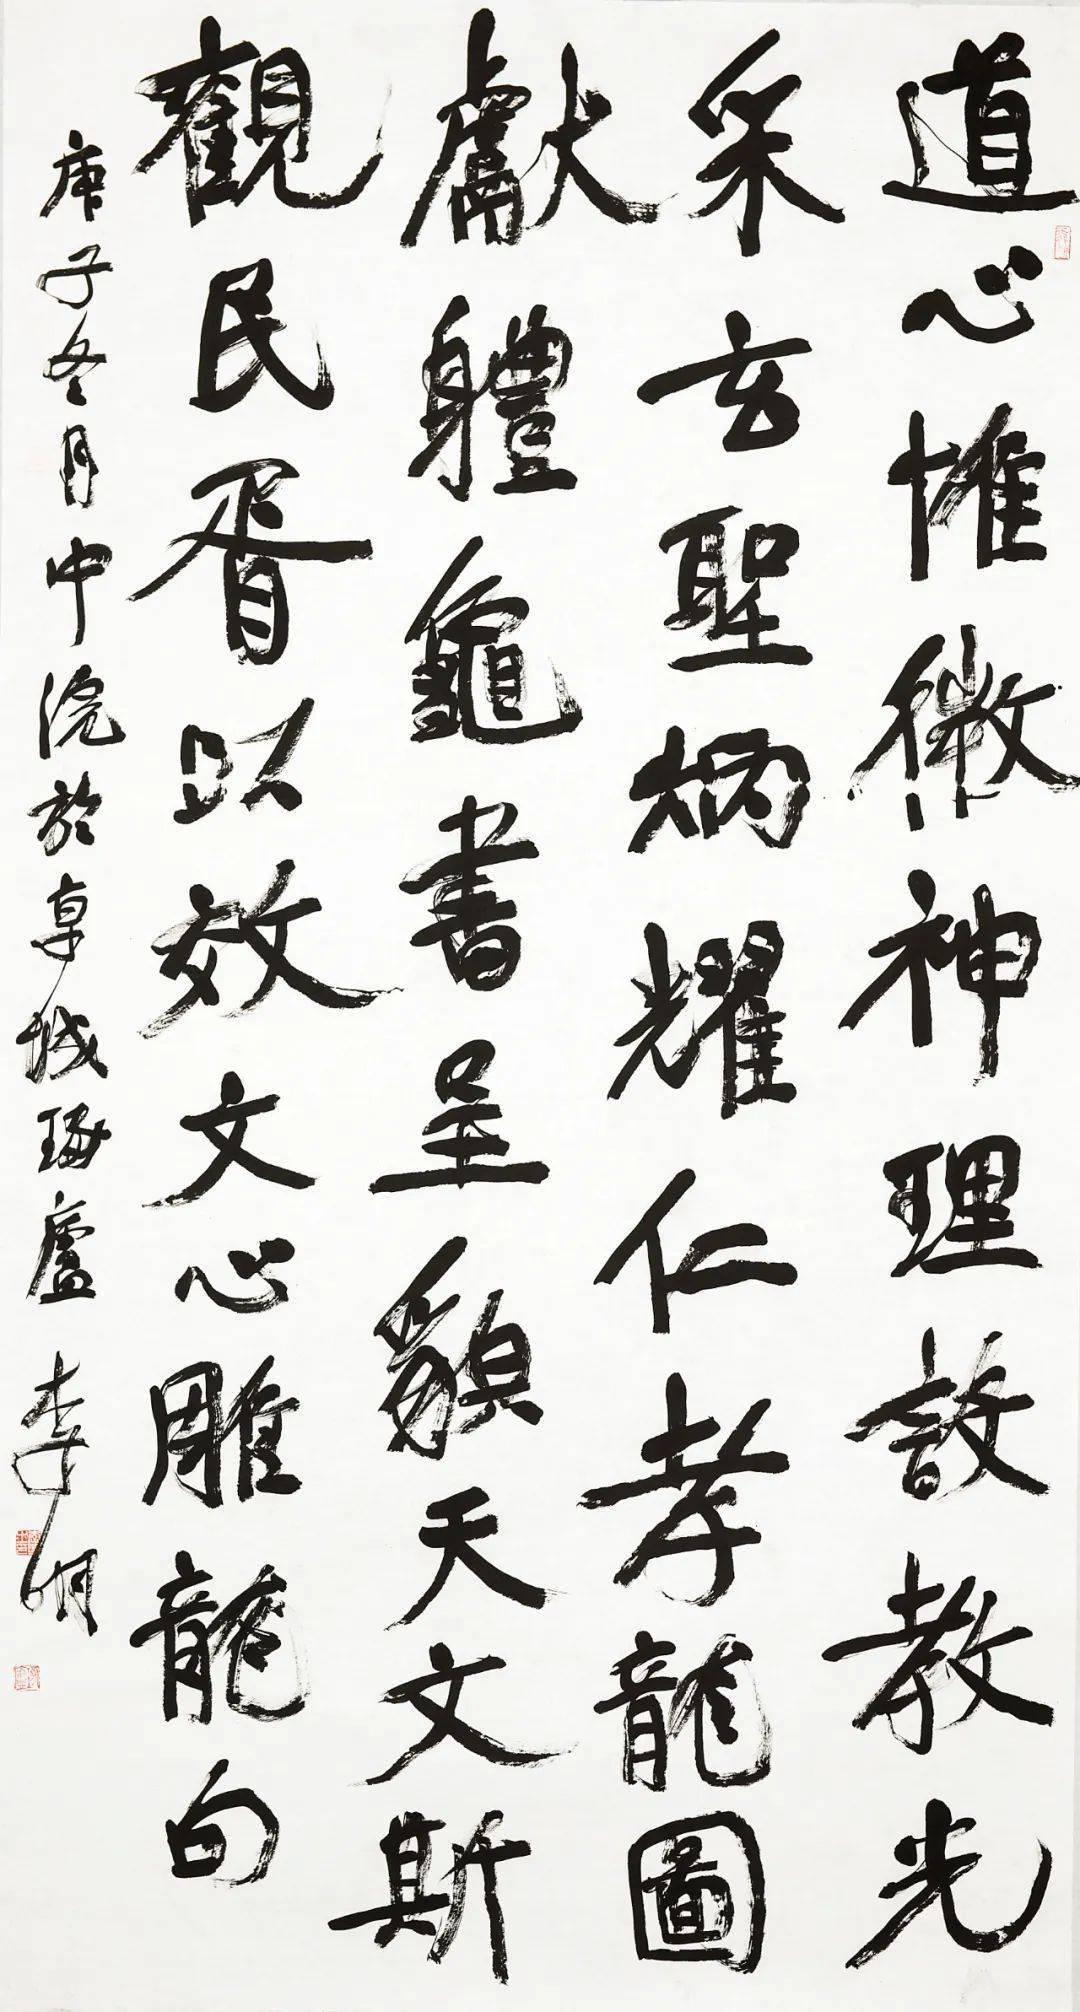 道心惟微神理設教光
采玄聖炳耀仁孝龍圖
獻體龜書呈貌天文斯
觀民胥以效文心雕龍句
庚子冬月中浣於卓城琢廬 李明